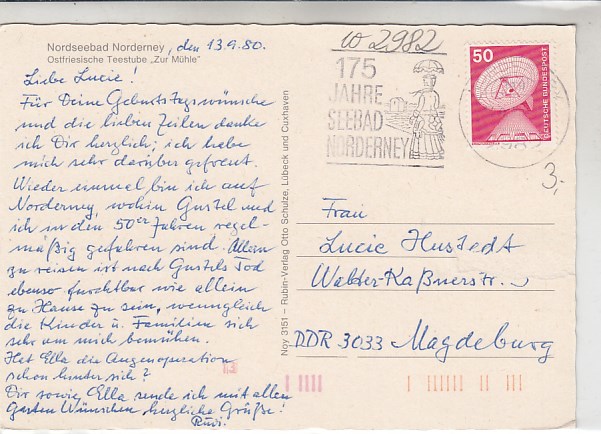 Nordseebad Norderney, den 13.9.80.
Ostfriesische Teestube „Zur Mühle"
Liebe Lucie!
Für Deine Geburtstagswünsche
und die lieben Zeilen danke
ich Dir herzlich; ich habe
mich sehr darüber gefreut.
Wieder einmal bin ich auf
Norderney, wohin Gustel und
ich in den 50er Jahren regel-
mäßig gefahren sind. Allein
zu reisen ist nach Gustels Tod
ebenso furchtbar wie allein
zu Hause zu sein, wenngleich
die Kinder u. Familien sich
sehr um mich bemühen.
Hat Ella die Augenoperation
schon hinter sich?
Dir sowie Ella sende ich mit allen
guten Wünschen herzliche Grüße!
Rudi.
Noy 3151 – Rubin-Verlag Otto Schulze, Lübeck und Cuxhaven
W 2982
175
JAHRE
SEEBAD
NORDERNEY
50
DEUTSCHE BUNDESPOST
3,-
Frau
Lucie Hustedt
Walter-Kaßnerstr.
DDR 3033 Magdeburg